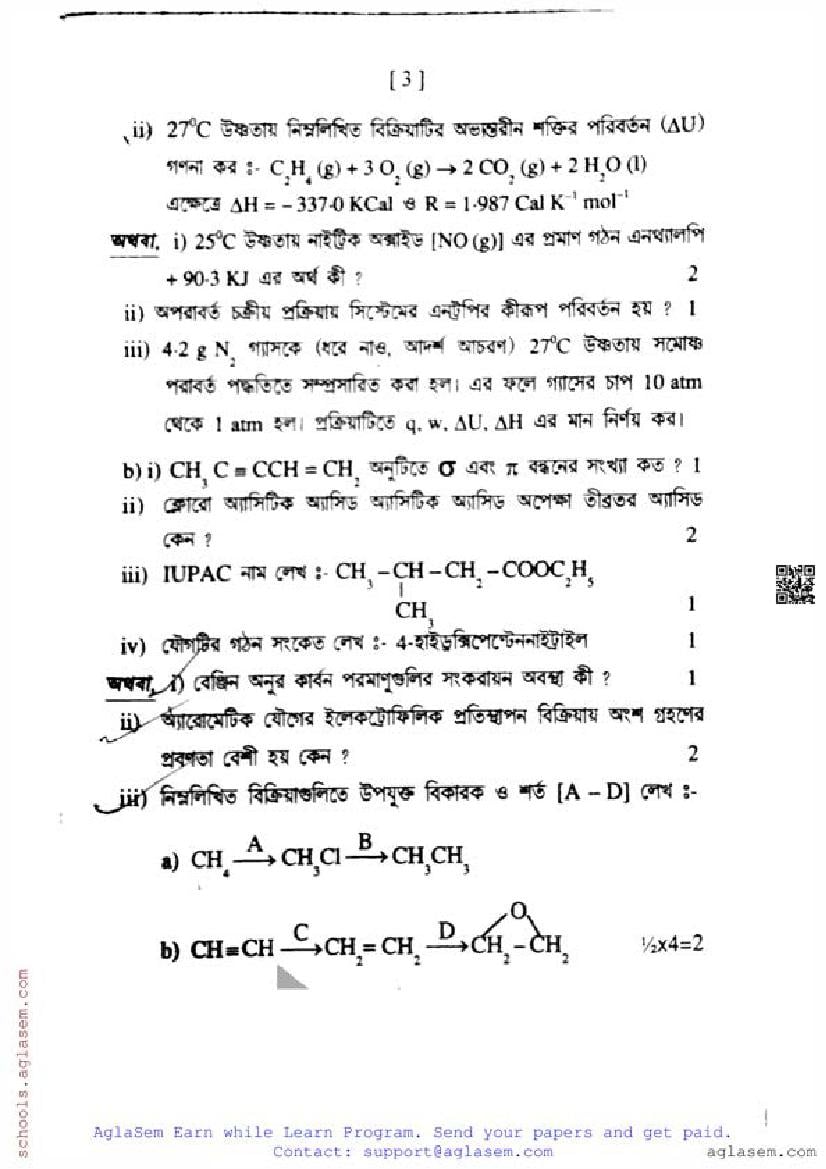 [ 3 ]
ii) 27°C উষ্ণতায় নিম্নলিখিত বিক্রিয়াটির অভ্যন্তরীন শক্তির পরিবর্তন (ΔU)
গণনা কর :- C₂H₄ (g) + 3 O₂ (g) → 2 CO₂ (g) + 2 H₂O (l)
এক্ষেত্রে ΔH = – 337·0 KCal ও R = 1·987 Cal K⁻¹ mol⁻¹
অথবা, i) 25°C উষ্ণতায় নাইট্রিক অক্সাইড [NO (g)] এর প্রমাণ গঠন এনথ্যালপি
+ 90·3 KJ এর অর্থ কী ? 2
ii) অপরাবর্ত চক্রীয় প্রক্রিয়ায় সিস্টেমের এনট্রপির কীরূপ পরিবর্তন হয় ? 1
iii) 4·2 g N₂ গ্যাসকে (ধরে নাও, আদর্শ আচরণ) 27°C উষ্ণতায় সমোষ্ণ
পরাবর্ত পদ্ধতিতে সম্প্রসারিত করা হল। এর ফলে গ্যাসের চাপ 10 atm
থেকে 1 atm হল। প্রক্রিয়াটিতে q, w, ΔU, ΔH এর মান নির্ণয় কর।
b) i) CH₃ C ≡ CCH = CH₂ অনুটিতে σ এবং π বন্ধনের সংখ্যা কত ? 1
ii) ক্লোরো অ্যাসিটিক অ্যাসিড অ্যাসিটিক অ্যাসিড অপেক্ষা তীব্রতর অ্যাসিড
কেন ? 2
iii) IUPAC নাম লেখ :- CH₃ – CH – CH₂ – COOC₂H₅
|
CH₃ 1
iv) যৌগটির গঠন সংকেত লেখ :- 4-হাইড্রক্সিপেন্টেননাইট্রাইল 1
অথবা, i) বেঞ্জিন অনুর কার্বন পরমাণুগুলির সংকরায়ন অবস্থা কী ? 1
ii) অ্যারোমেটিক যৌগের ইলেকট্রোফিলিক প্রতিস্থাপন বিক্রিয়ায় অংশ গ্রহণের
প্রবণতা বেশী হয় কেন ? 2
iii) নিম্নলিখিত বিক্রিয়াগুলিতে উপযুক্ত বিকারক ও শর্ত [A – D] লেখ :-
a) CH₄ —A→ CH₃Cl —B→ CH₃CH₃
O
b) CH≡CH —C→ CH₂ = CH₂ —D→ CH₂ – CH₂ ½x4=2
schools.aglasem.com
AglaSem Earn while Learn Program. Send your papers and get paid.
Contact: support@aglasem.com
aglasem.com